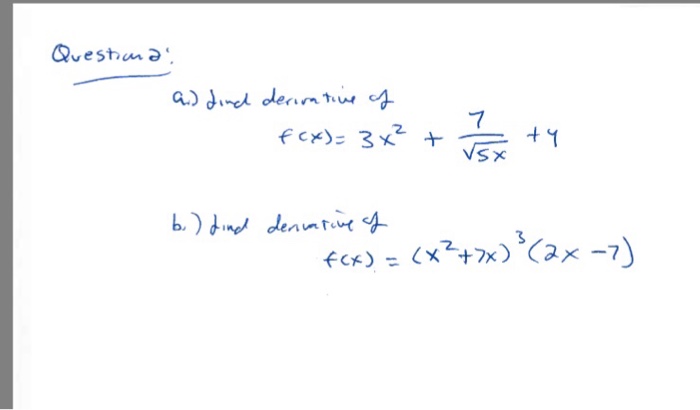 Question 2:
a.) find derivative of
f(x) = 3x² + 7/√5x + 4
b.) find derivative of
f(x) = (x²+7x)³(2x -7)